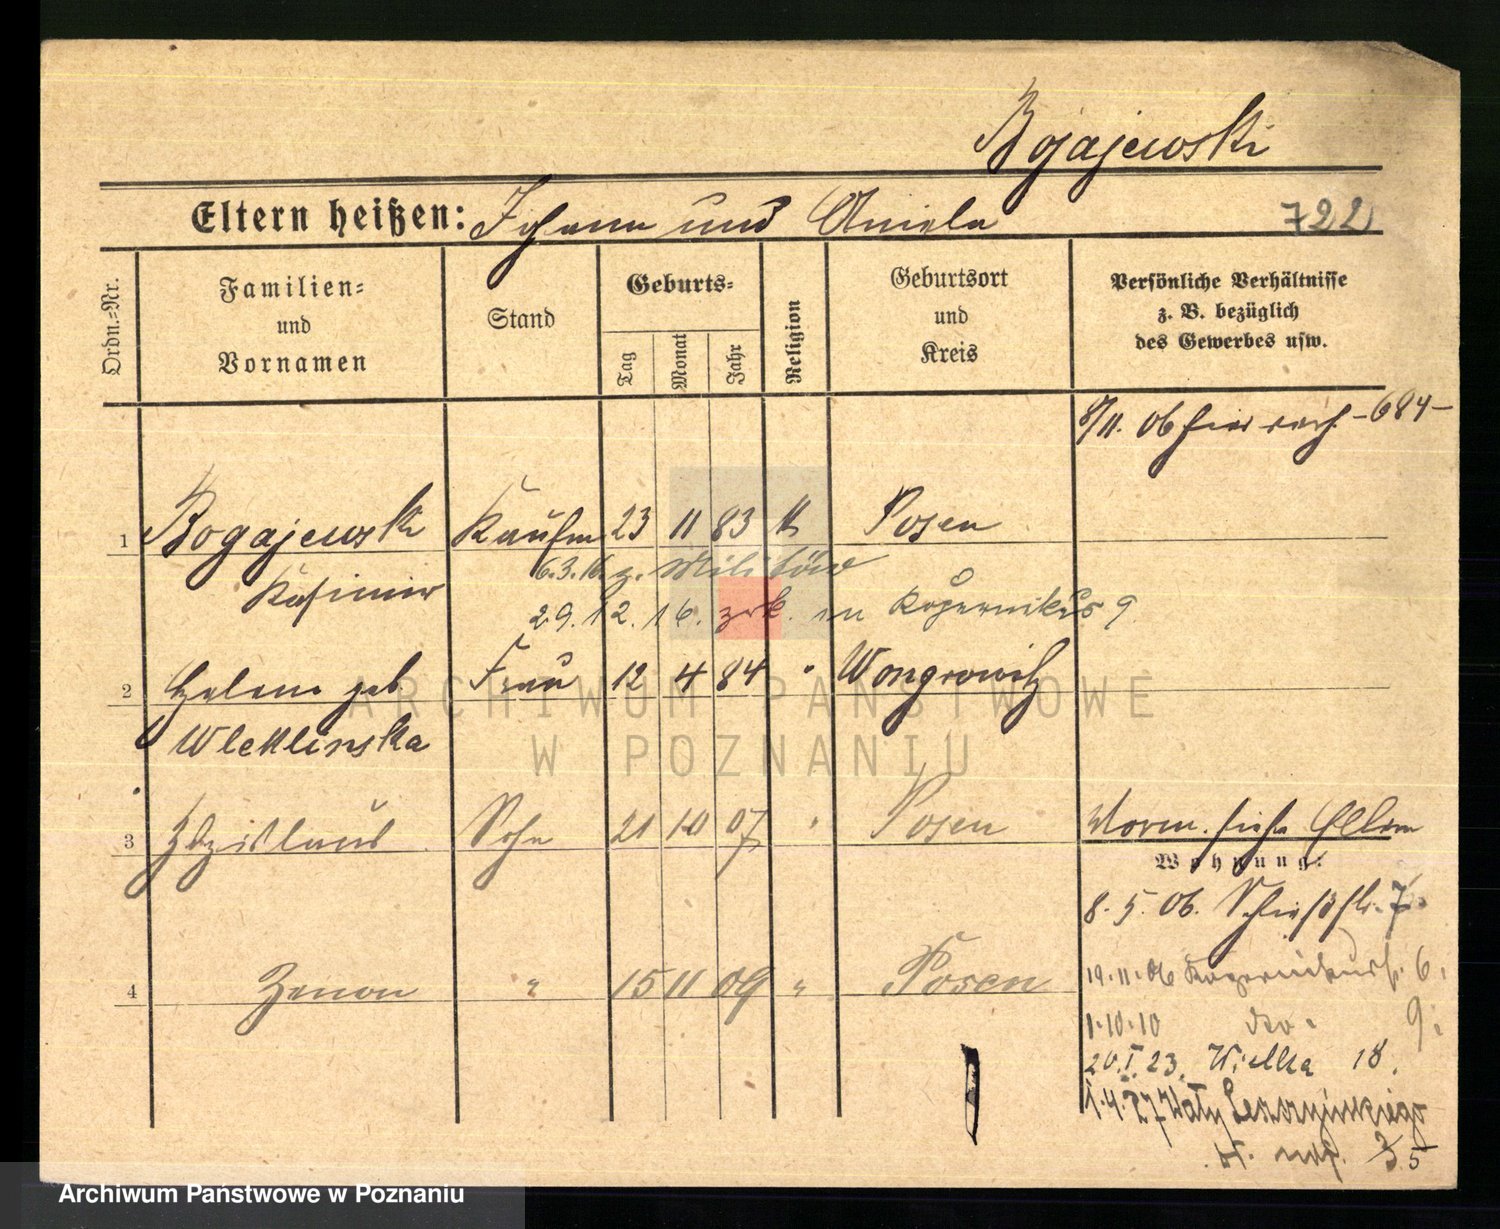 Bogajewski
Eltern heißen: Johann und Aniela 722
Ordn.-Nr.
Familien-
und
Vornamen
Stand
Geburts-
Tag
Monat
Jahr
Religion
Geburtsort
und
Kreis
Persönliche Verhältnisse
z. B. bezüglich
des Gewerbes usw.
8/11. 06 hier -684-
1 Bogajewski Kaufm 23 11 83 k Posen
Kasimir
6.3.16 z. Militär
29.12.16. zrk. in Kopernikus 9
2 Helene geb. Frau 12 4 84 " Wongrowitz
Wleklinska
3 Zdzislaus Sohn 21 10 07 " Posen
Worm. siehe Eltern
Wohnung:
8.5.06. Schießstr. 7.
4 Zenon " 15 11 09 " Posen
19.11.06 Kopernikusstr. 6.
1.10.10 dto. 9.
20.I.23. Wielka 18.
1.4.27
35
ARCHIWUM PAŃSTWOWE
W POZNANIU
Archiwum Państwowe w Poznaniu